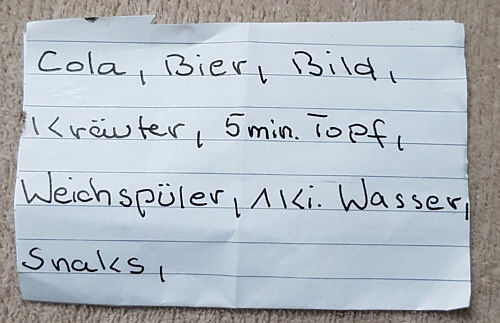 Cola, Bier, Bild,
Kräuter, 5min. Topf,
Weichspüler, 1Ki. Wasser,
Snaks,